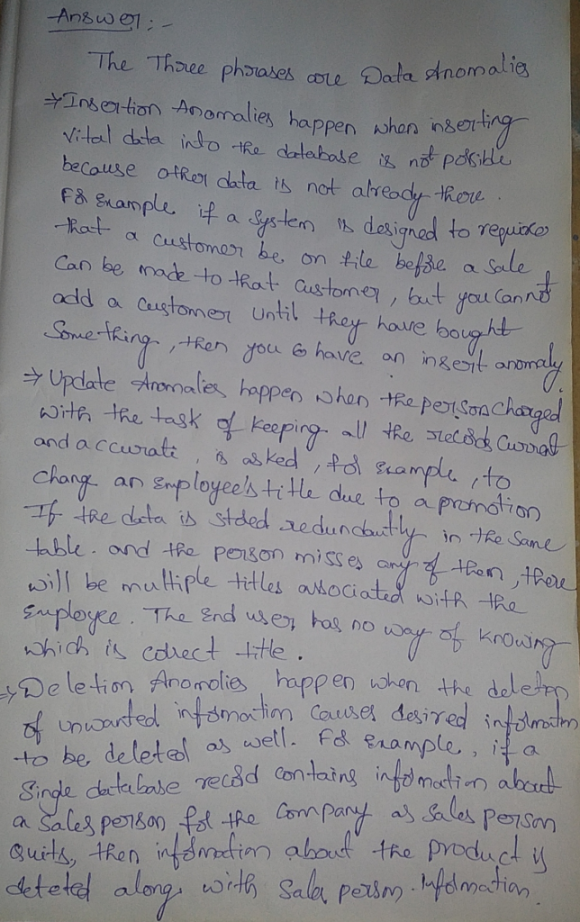 Answer :-
The Three phrases are Data Anomalies
⇒ Insertion Anomalies happen when inserting
vital data into the database is not possible
because other data is not already there.
For Example if a System is designed to require
that a customer be on file before a sale
Can be made to that Customer, but you cannot
add a customer until they have bought
Something, then you have an insert anomaly.
⇒ Update Anomalies happen when the person charged
with the task of keeping all the records Currat
and accurate, is asked, for example, to
change an Employee's title due to a promotion
If the data is stored redundantly in the same
table. and the person misses any of them, there
will be multiple titles associated with the
Employee. The End user has no way of Knowing
which is correct title.
⇒ Deletion Anomolies happen when the deletion
of unwanted information causes desired information
to be deleted as well. For Example, if a
Single database record contains information about
a Sales person for the Company as Sales person
Quits, then information about the product is
deteted along with Sales person. Information.